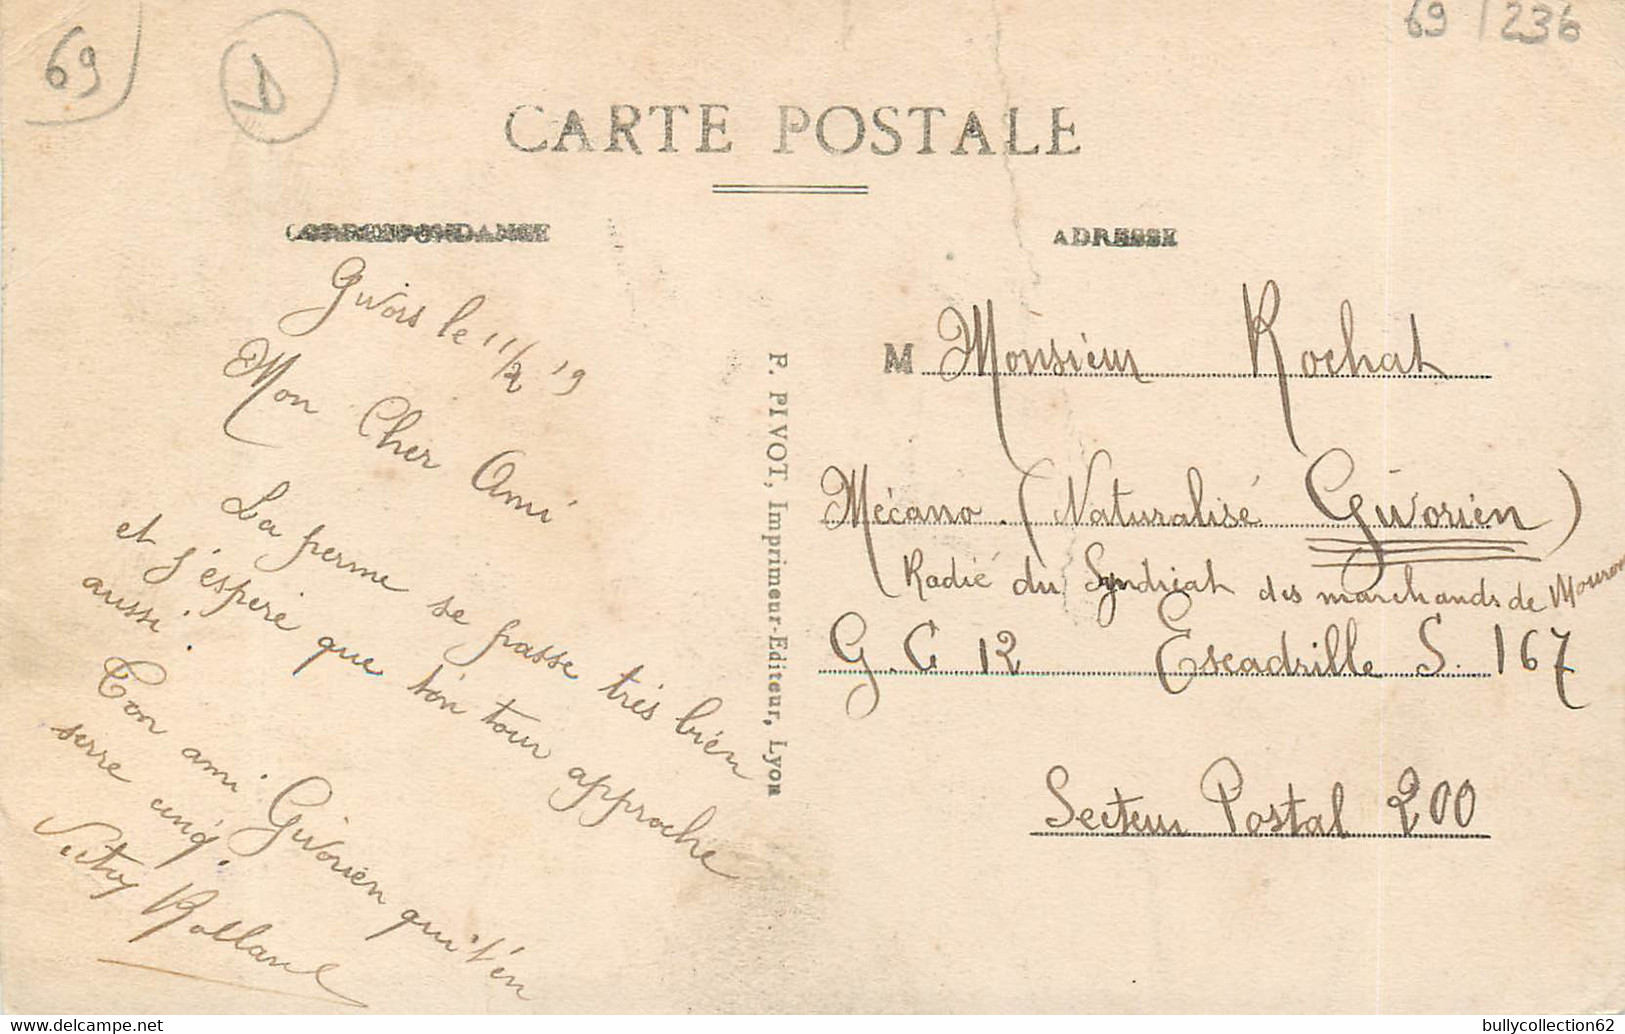 69
D
69 / 236
CARTE POSTALE
CORRESPONDANCE
ADRESSE
Givors le 11/2 19
Mon Cher Ami
La perme se passe très bien
et j'espère que ton tour approche
aussi.
Ton ami Givorien qui t'en
serre cinq.
Rolland
P. PIVOT, Imprimeur-Editeur, Lyon
M Monsieur Rochat
Mécano. (Naturalisé Givorien)
Radié du Syndicat des marchands de Mouron
G. C 12 Escadrille S. 167
Secteur Postal 200
bullycollection62